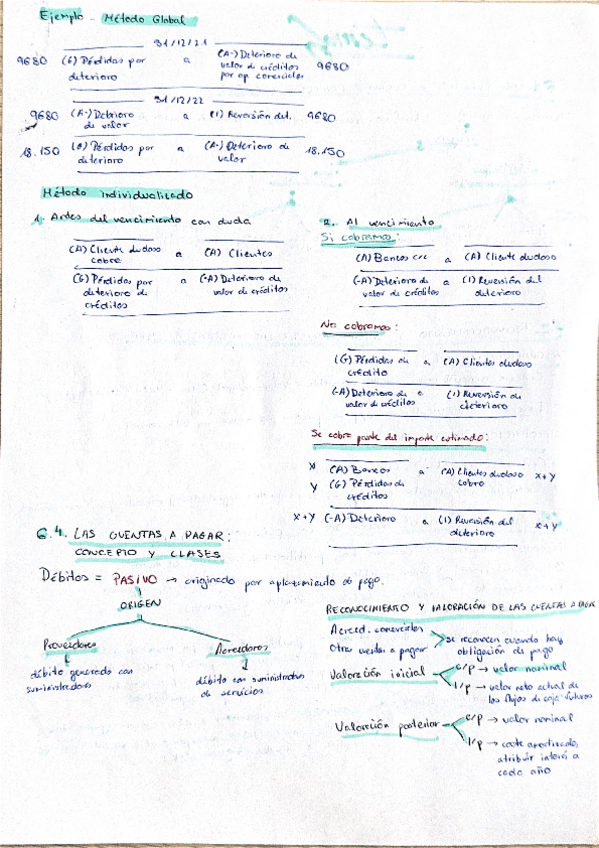 Ejemplo - Método Global
31/12/21
9680 (G) Pérdidas por deterioro a (A-) Deterioro de valor de créditos por op comerciales 9680
31/12/22
9680 (A-) Deterioro de valor a (I) Reversión det. 9680
18.150 (G) Pérdidas por deterioro a (A-) Deterioro de valor 18.150
Método individualizado
1. Antes del vencimiento con duda
(A) Cliente dudoso cobro a (A) Clientes
(G) Pérdidas por deterioro de créditos a (-A) Deterioro de valor de créditos
2. Al vencimiento
Si cobramos:
(A) Bancos c/c a (A) Cliente dudoso
(-A) Deterioro de valor de créditos a (I) Reversión del deterioro
No cobramos:
(G) Pérdidas de crédito a (A) Clientes dudoso
(-A) Deterioro de valor de créditos a (I) Reversión de deterioro
Se cobra parte del importe estimado:
X (A) Bancos a (A) Clientes dudoso cobro X+Y
Y (G) Pérdidas de créditos
X+Y (-A) Deterioro a (I) Reversión del deterioro X+Y
6.4. LAS CUENTAS A PAGAR:
CONCEPTO Y CLASES
Débitos = PASIVO → originado por aplazamiento de pago.
ORIGEN
Proveedores
débito generado con
suministradores
Acreedores
débito con suministradores
de servicios
RECONOCIMIENTO Y VALORACIÓN DE LAS CUENTAS A PAGAR
Acreed. comerciales
Otras cuentas a pagar
se reconocen cuando hay
obligación de pago
Valoración inicial
c/p → valor nominal
l/p → valor neto actual de
los flujos de caja futuros
Valoración posterior
c/p → valor nominal
l/p → coste amortizado,
atribuir interés a
cada año